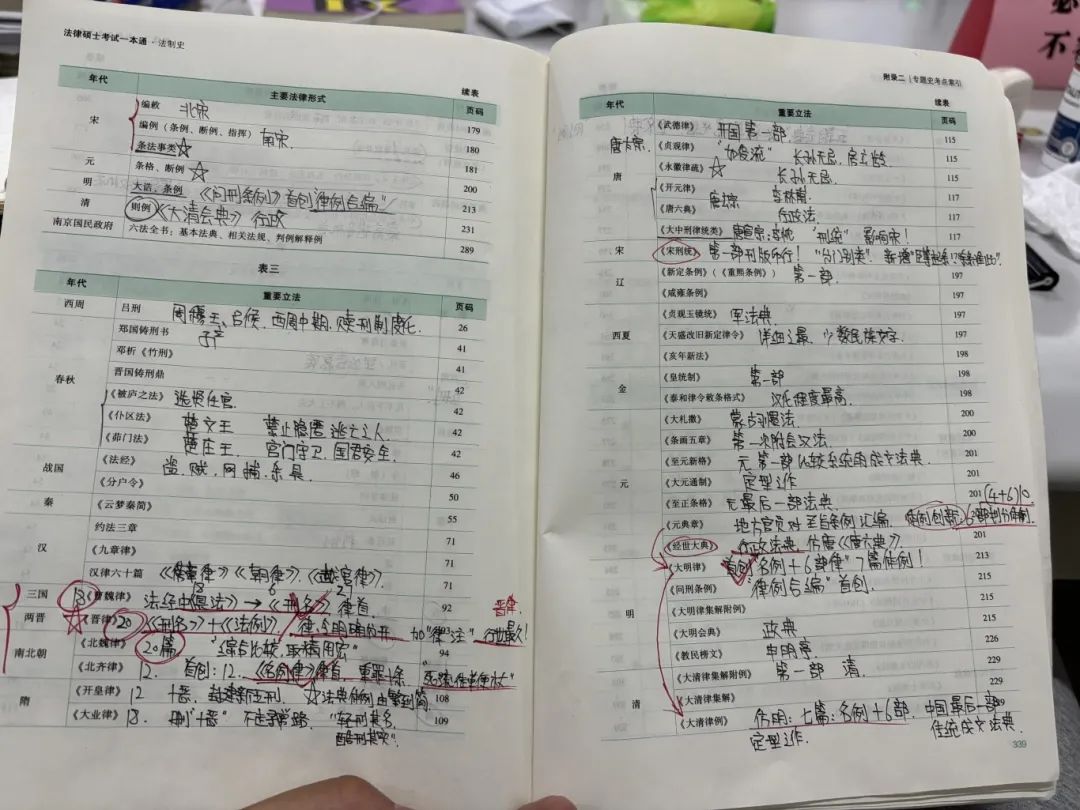 法律硕士考试一本通·法制史
续表
年代 主要法律形式 页码
宋 编敕 北宋 179
编例（条例、断例、指挥） 南宋 180
条法事类☆ 181
元 条格、断例☆ 200
明 大诰、条例 《问刑条例》首创“律例合编” 213
清 则例《大清会典》行政 231
南京国民政府 六法全书：基本法典、相关法规、判例解释例 289
表三
年代 重要立法 页码
西周 吕刑 周穆王、吕侯、西周中期、赎刑制度化 26
春秋 郑国铸刑书 子产 41
邓析《竹刑》 41
晋国铸刑鼎 42
《被庐之法》选贤任官 42
《仆区法》 楚文王 禁止隐匿逃亡之人 42
《茆门法》 楚庄王 宫门守卫、国君安全 42
战国 《法经》 盗、贼、网、捕、杂、具 46
《分户令》 50
秦 《云梦秦简》 55
汉 约法三章 71
《九章律》 71
汉律六十篇 《傍章律》《朝律》、《越宫律》 71
三国 18《曹魏律》 法经中《具法》→《刑名》律首 92
两晋 ☆《晋律》20 《刑名》+《法例》 律、令明确分开 加“律注” 行世最久！
晋律
南北朝 《北魏律》 20篇 “综合比较，取精用宏” 94
《北齐律》 12. 首创：12. 《名例律》律首 重罪十条
隋 《开皇律》 12 十恶、封建新五刑 ☆法典体例由繁到简 108
《大业律》 18. 删“十恶” 不走寻常路 “轻刑其名， 109
酷刑其实”.
附录二 | 专题史考点索引
续表
年代 重要立法 页码
唐 《武德律》 开国第一部 115
唐太宗 《贞观律》 长孙无忌、房玄龄 115
《永徽律疏》☆ 长孙无忌 116
《开元律》 唐玄宗 李林甫 117
《唐六典》 行政法 117
《大中刑律统类》 唐宣宗 “刑统” 影响宋！ 117
宋 《宋刑统》 第一部刊版印行！ “分门别类”
辽 《新定条例》（《重熙条例》） 第一部 197
《咸雍条例》 197
西夏 《贞观玉镜统》 军法典 197
《天盛改旧新定律令》 详细之最、少数民族文字 197
《亥年新法》 198
金 《皇统制》 第一部 198
《泰和律令敕条格式》 汉化程度最高 198
元 《大札撒》 蒙古习惯法 200
《条画五章》 第一次附会汉法 200
《至元新格》 元第一部比较系统的成文法典 201
《大元通制》 定型之作 201
《至正条格》 元最后一部法典 201 (4+6)10
《元典章》 地方官员对圣旨条例汇编 体例创新，6部划分体制
《经世大典》 行政法典 仿唐《唐六典》 201
明 《大明律》 首创“名例+6部律”7篇体例！ 213
《问刑条例》 “律例合编”首创 215
《大明律集解附例》 215
《大明会典》 政典 215
《教民榜文》 申明亭 226
清 《大清律集解附例》 第一部 清 229
《大清律集解》 229
《大清律例》 仿明：七篇：名例+6部 中国最后一部
定型之作 传统成文法典
339